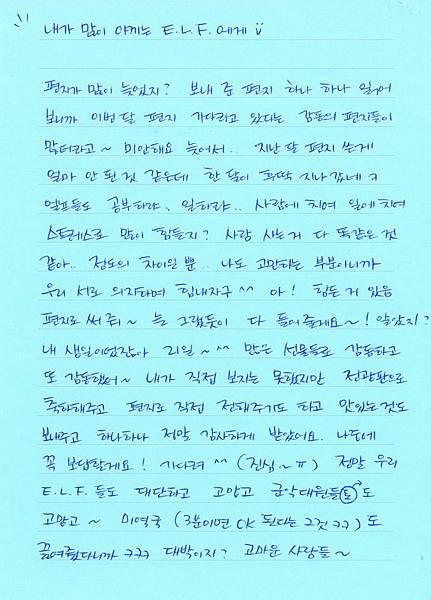 내가 많이 아끼는 E.L.F. 에게
편지가 많이 늦었지? 보내 준 편지 하나 하나 읽어
보니까 이번 달 편지 기다리고 있다는 감동의 편지들이
많더라고~ 미안해요 늦어서.. 지난 달 편지 쓴게
얼마 안 된 것 같은데 한 달이 후딱 지나갔네 ㅋ
엘프들도 공부하랴, 일하랴.. 사람에 치여 일에 치여
스트레스로 많이 힘들지? 사람 사는 거 다 똑같은 것
같아.. 정도의 차이일 뿐.. 나도 고민하는 부분이니까
우리 서로 의지하며 힘내자구 ^^ 아! 힘든 거 있음
편지로 써 줘~ 늘 그랬듯이 다 들어줄게요~! 알았지?
내 생일이었잖아 21일~^^ 많은 선물들로 감동하고
또 감동했어~ 내가 직접 보지는 못했지만 전광판으로
축하해주고 편지로 직접 전해주기도 하고 맛있는 것도
보내주고 하나하나 정말 감사하게 받았어요. 나중에
꼭 보답할게요! 기다려 ^^ (진심~ㅠ) 정말 우리
E.L.F. 들도 대단하고 고맙고 군악대원들도
고맙고~ 미역국 (3분이면 OK 된다는 그것 ㅋㅋ) 도
끓여줬다니까 ㅋㅋㅋ 대박이지? 고마운 사람들~